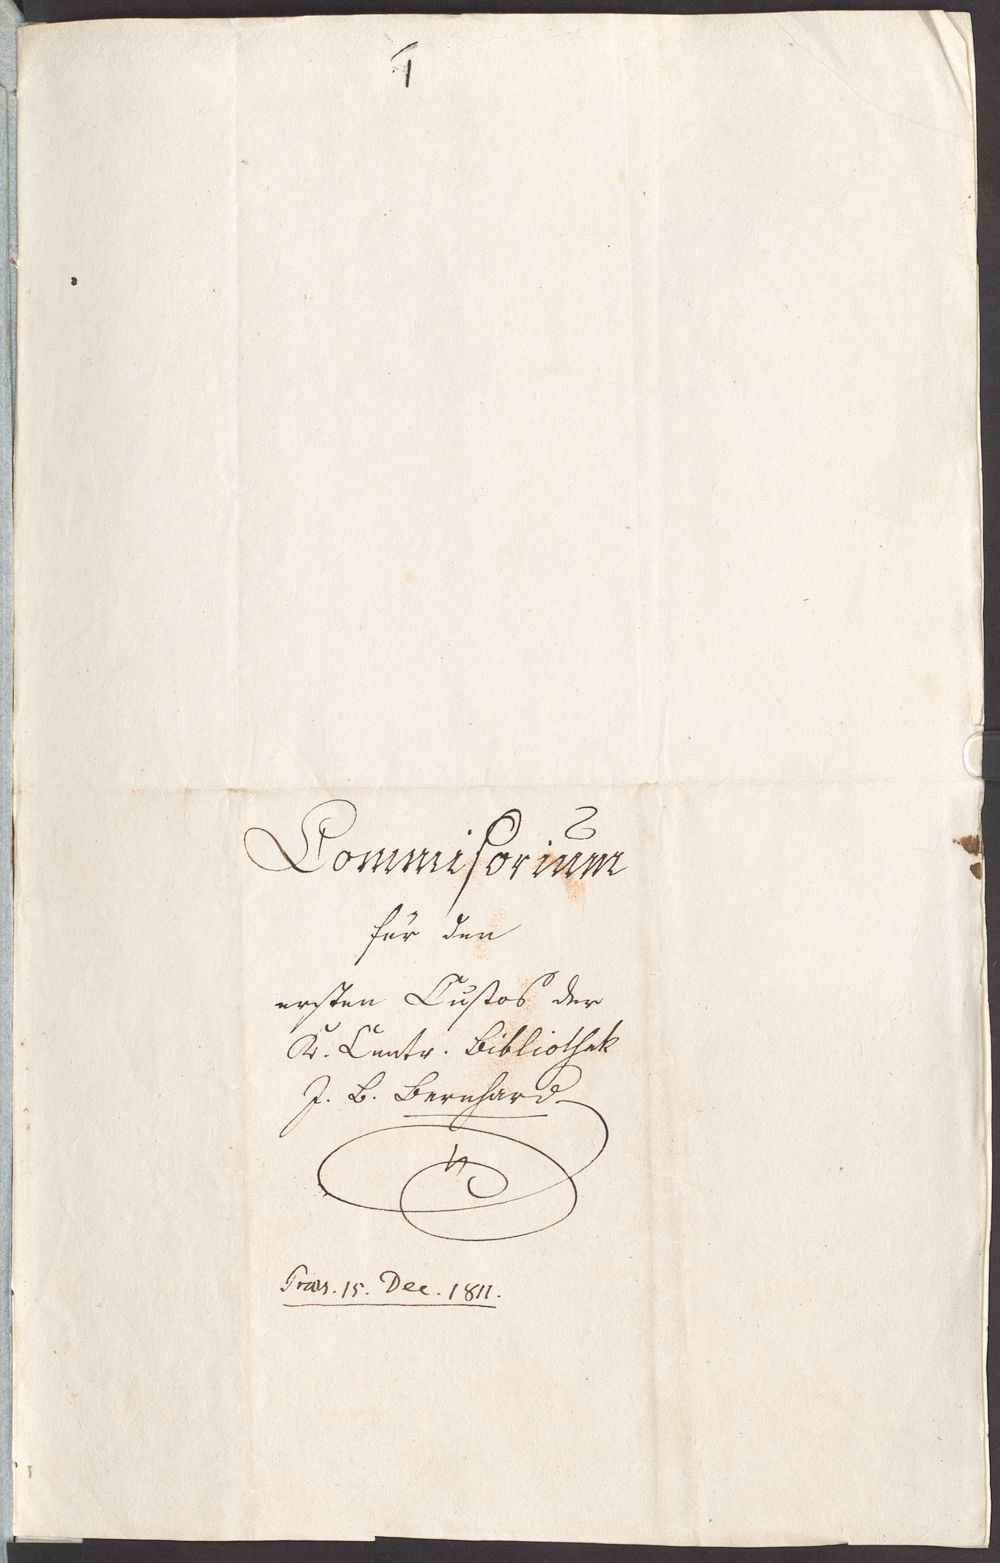 Commissorium
für den
ersten Custos der
K. Centr. Bibliothek
J. B. Bernhard
Praes. 15. Dec. 1811.